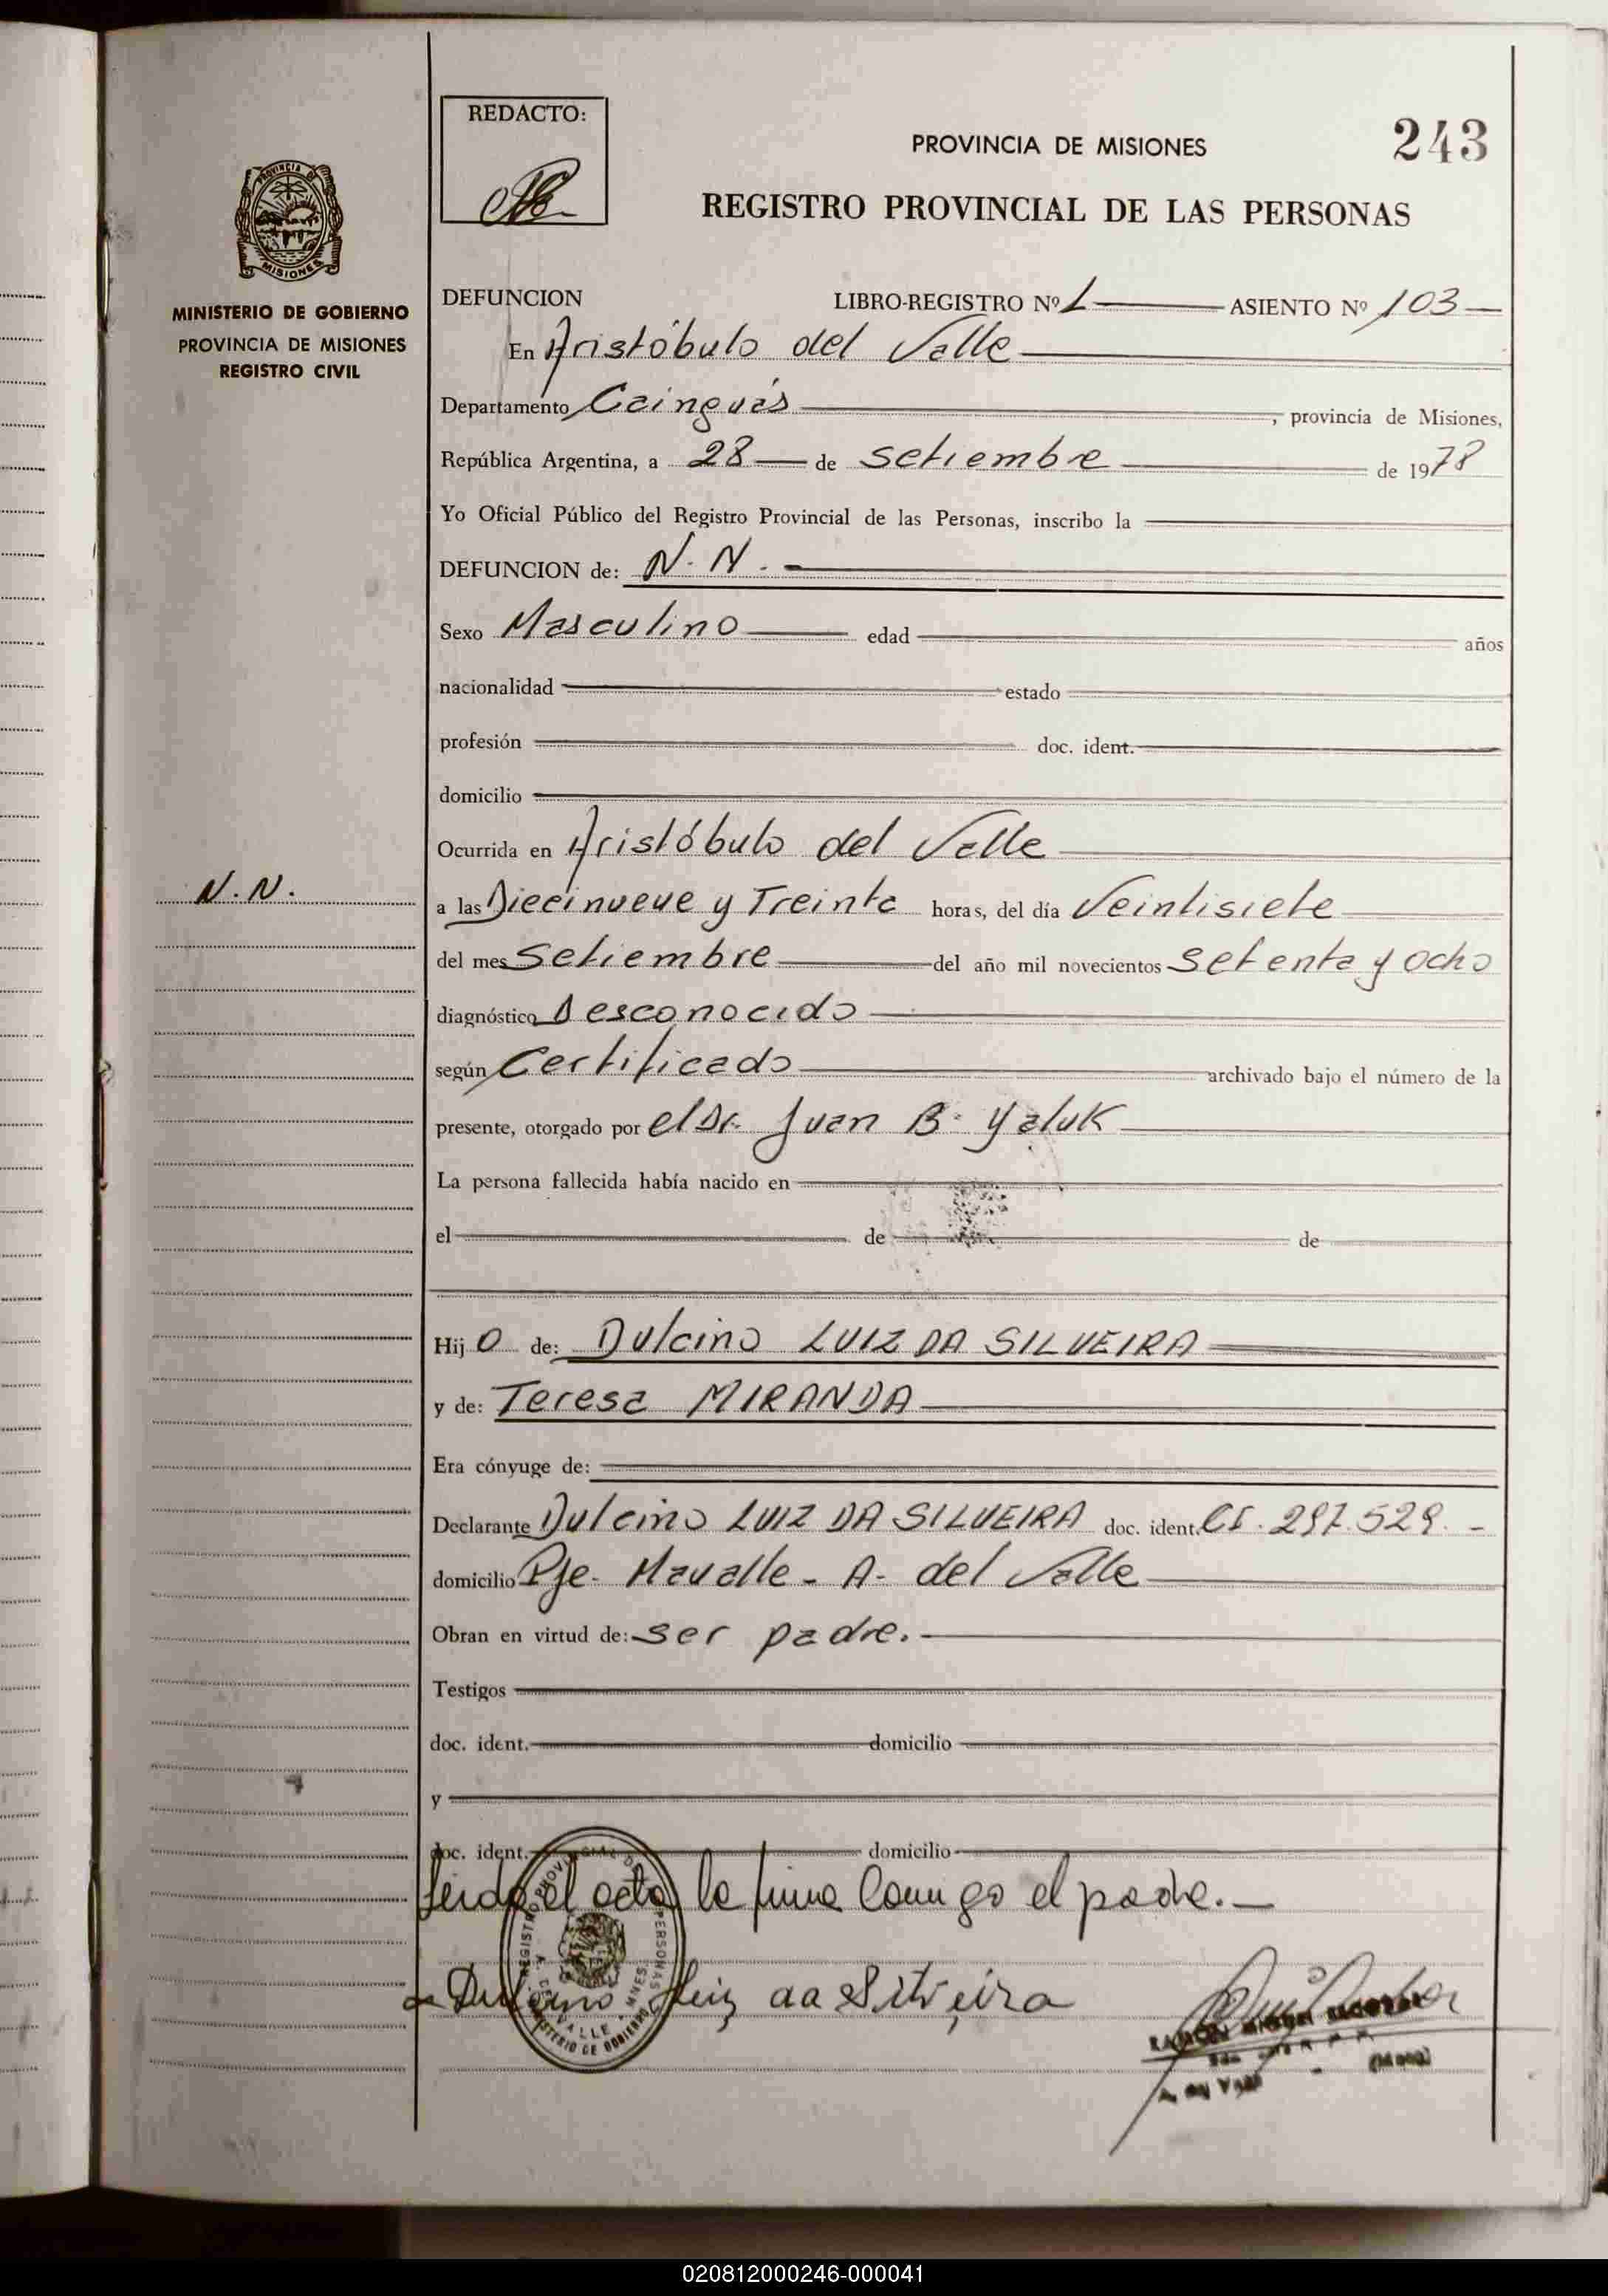 REDACTO:
PROVINCIA DE MISIONES
243
REGISTRO PROVINCIAL DE LAS PERSONAS
PROVINCIA DE
MISIONES
MINISTERIO DE GOBIERNO
PROVINCIA DE MISIONES
REGISTRO CIVIL
DEFUNCION LIBRO-REGISTRO Nº 1 ASIENTO Nº 103
En Aristóbulo del Valle
Departamento Cainguás, provincia de Misiones,
República Argentina, a 28 de setiembre de 1978
Yo Oficial Público del Registro Provincial de las Personas, inscribo la
DEFUNCION de: N. N.
Sexo Masculino edad años
nacionalidad estado
profesión doc. ident.
domicilio
Ocurrida en Aristóbulo del Valle
N. N.
a las Diecinueve y Treinta horas, del día Veintisiete
del mes Setiembre del año mil novecientos setenta y ocho
diagnóstico Desconocido
según Certificado archivado bajo el número de la
presente, otorgado por el Dr. Juan B. Yaluk
La persona fallecida había nacido en
el de de
Hijo de: Dulcino LUIZ DA SILVEIRA
y de: Teresa MIRANDA
Era cónyuge de:
Declarante Dulcino LUIZ DA SILVEIRA doc. ident. CI. 297.529.-
domicilio Pje. Mavalle - A. del Valle
Obran en virtud de: ser padre.
Testigos
doc. ident. domicilio
y
doc. ident. domicilio
Leida el acta la firma conmigo el padre.
Dulcino Luiz da Silveira
REGISTRO PROVINCIAL DE PERSONAS
A. DEL VALLE MNES
MINISTERIO DE GOBIERNO
RAMON MIGUEL
A. del Valle
020812000246-000041